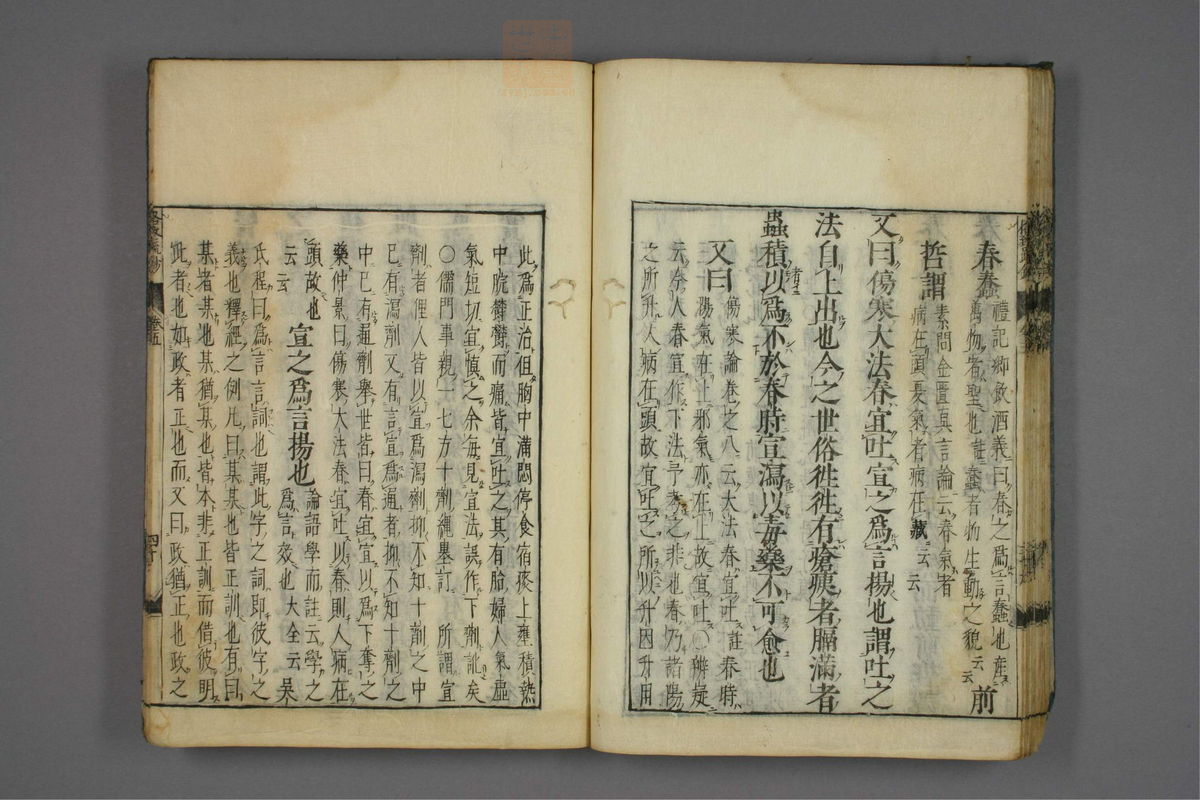 春蠢 禮記鄉飲酒義曰春之爲言蠢也產
萬物者聖也註蠢者物生動之貌云云 前
哲謂 素問金匱真言論云春氣者
病在頭夏氣者病在藏云云
又曰傷寒大法春宜吐宣之爲言揚也謂吐之
法自上出也今之世俗徃徃有瘡痍者膈滿者
蟲積以爲不於春時宣瀉以毒藥不可愈也
又曰 傷寒論卷之八云大法春宜吐註春時
陽氣在上邪氣亦在上故宜吐○辨疑
云今人春宜作下法予考之非也春乃諸陽
之所升人病在頭故宜吐之所以升因升用
此爲正治但胸中滿悶停食宿痰上壅積熱
中脘鬱鬱而痛皆宜吐之其有胎婦人氣虛
氣短切宜慎之余每見宣法誤作下劑訛矣
○儒門事親一七方十劑繩墨訂 所謂宣
劑者俚人皆以宣爲瀉劑抑不知十劑之中
已有瀉劑又有言宣爲通者抑不知十劑之
中已有通劑舉世皆曰春宜宣以爲下奪之
藥仲景曰傷寒大法春宜吐以春則人病在
頭故也 宣之爲言揚也 論語學而註云學之
云云 爲言效也大全云吳
氏程曰爲言言詞也謂此字之詞即彼字之
義也釋經之例凡曰某某也皆正訓也有曰
某者某也某猶某也皆本非正訓而借彼明
此者也如政者正也而又曰政猶正也政之